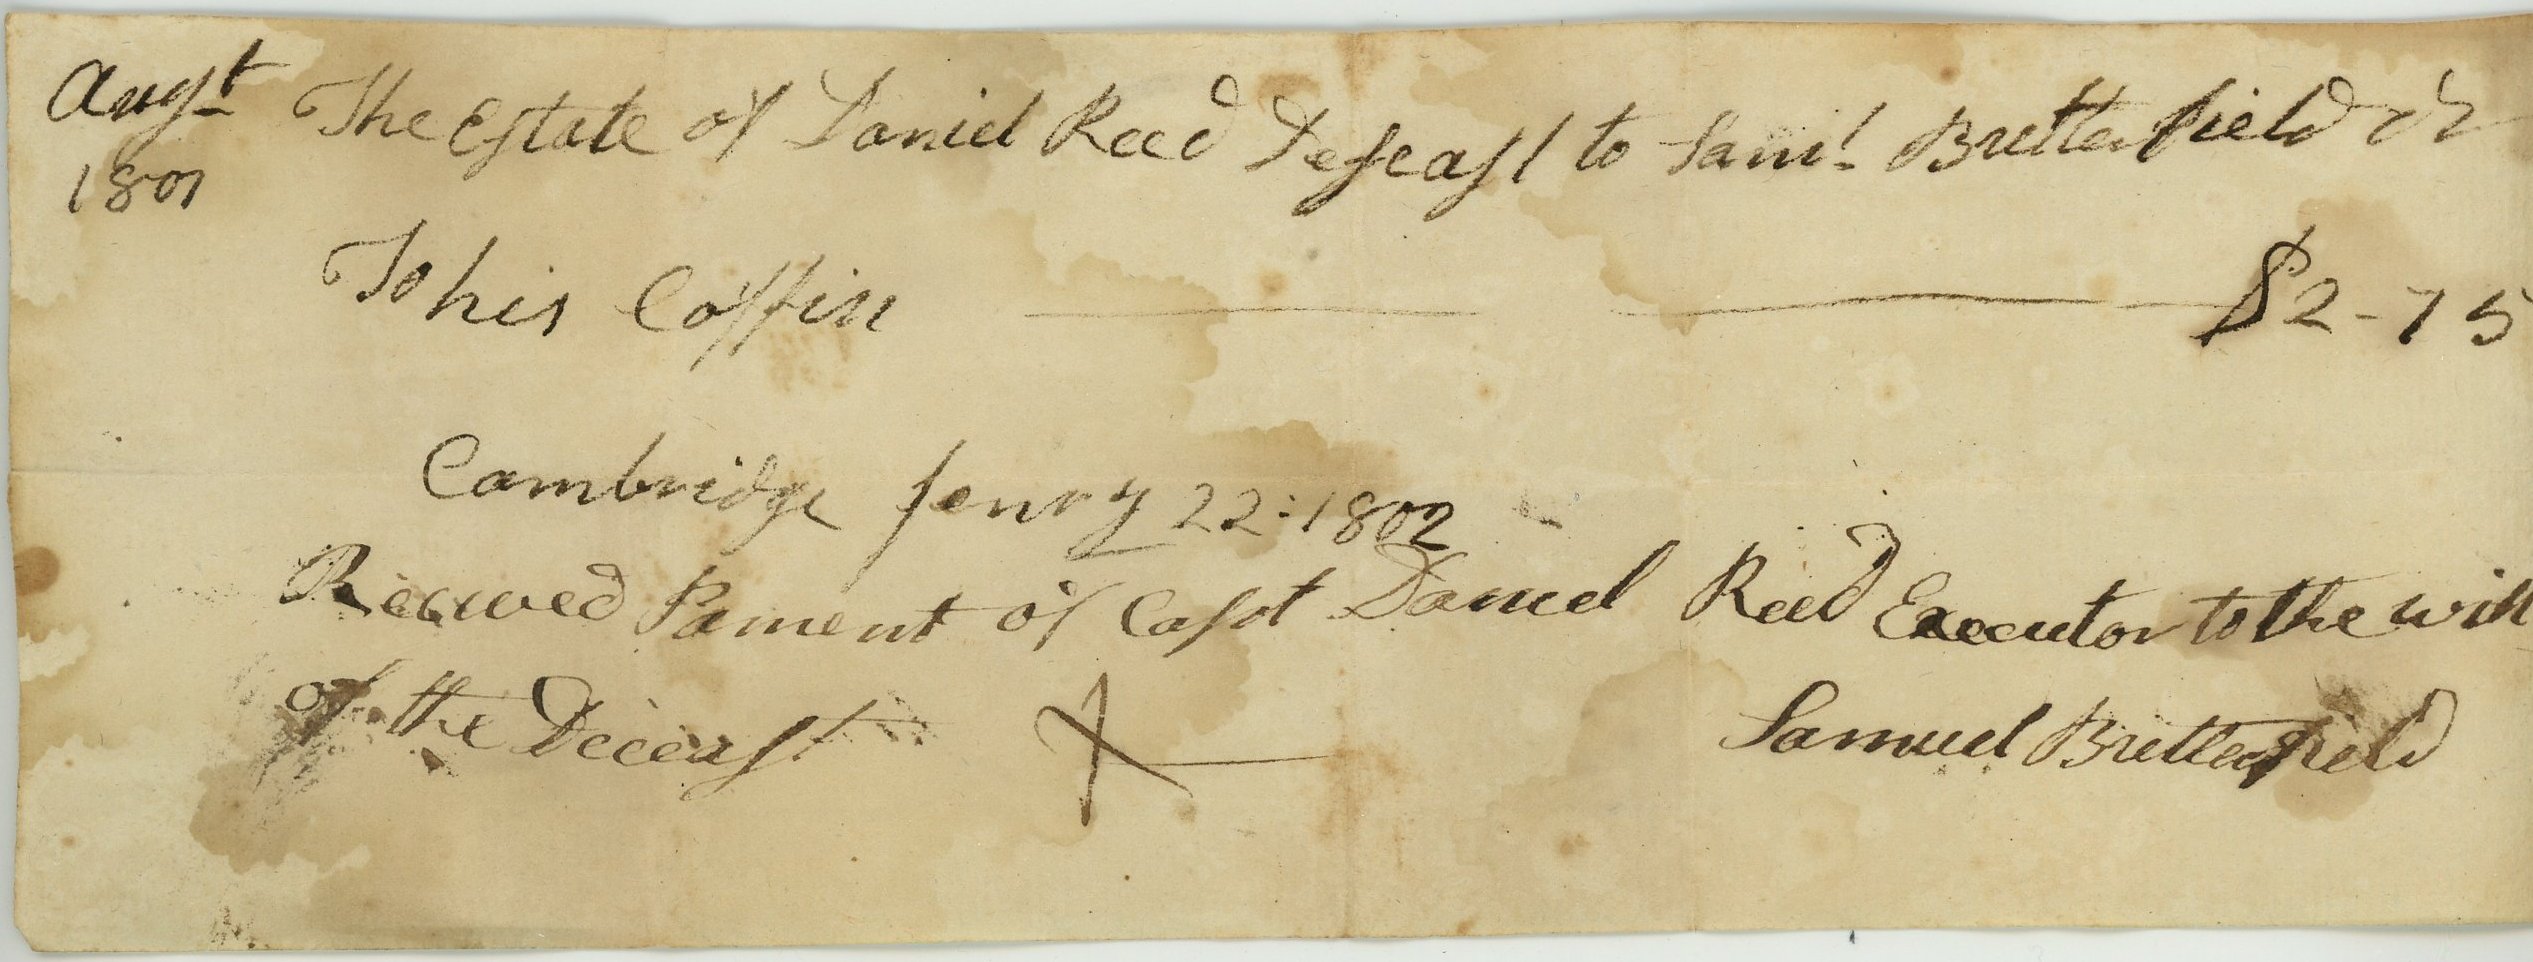 Augt The Estate of Daniel Reed Desceast to Saml Butterfield Dr
1801
To his Coffin $2-75
Cambridge Jenry 22:1802
Receved Pament of Capt Daniel Reed Executor to the will
of the Deceast
Samuel Butterfield